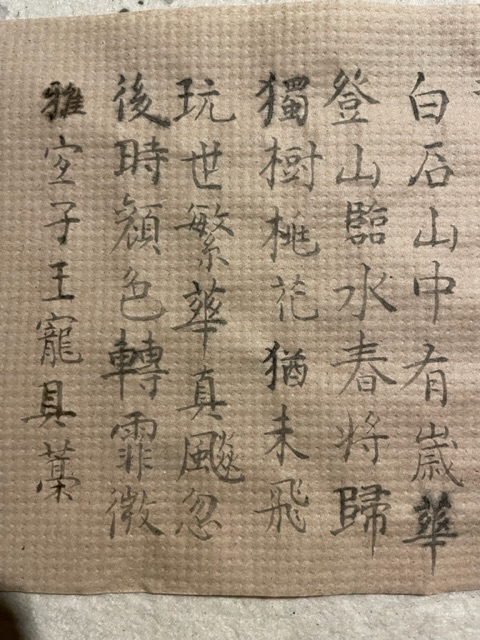 白石山中有歲華
登山臨水春將歸
獨樹桃花猶未飛
玩世繁華真飈忽
後時顏色轉霏微
雅宜子王寵具藁